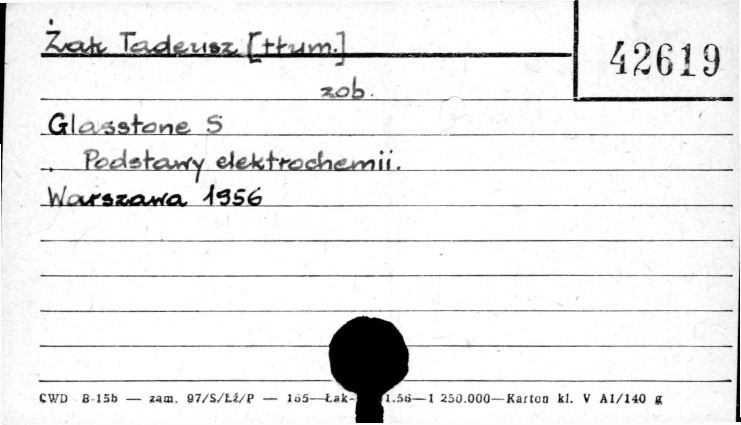 Żak Tadeusz [tłum.]
42619
zob.
Glasstone S
Podstawy elektrochemii.
Warszawa 1956
CWD 8-15b — zam. 97/S/Łź/P — 165—Łak- 1.56—1 250.000—Karton kl. V A1/140 g